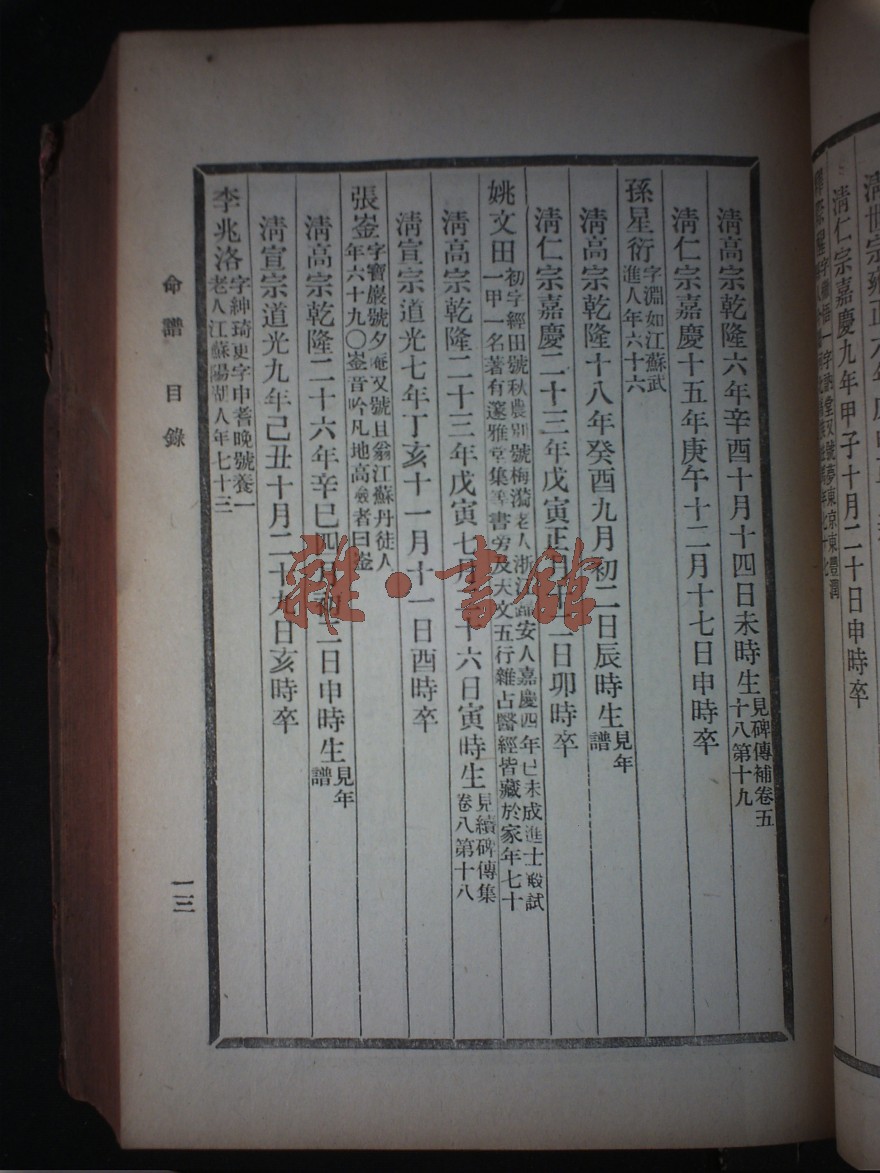 清世宗雍正
清仁宗嘉慶九年甲子十月二十日申時卒
清高宗乾隆六年辛酉十月十四日未時生 見碑傳補卷五
十八第十九
清仁宗嘉慶十五年庚午十二月十七日申時卒
孫星衍 字淵如江蘇武
進人年六十六
清高宗乾隆十八年癸酉九月初二日辰時生 見年
譜
清仁宗嘉慶二十三年戊寅正月十二日卯時卒
姚文田 初字經田號秋農別號梅漪老人浙江歸安人嘉慶四年己未成進士殿試
一甲一名著有邃雅堂集等書旁及天文五行雜占醫經皆藏於家年七十
清高宗乾隆二十三年戊寅七月二十六日寅時生 見續碑傳集
卷八第十八
清宣宗道光七年丁亥十一月十一日酉時卒
張崟 字寶巖號夕庵又號且翁江蘇丹徒人
年六十九〇崟音吟凡地高嶮者曰崟
清高宗乾隆二十六年辛巳四月初二日申時生 見年
譜
清宣宗道光九年己丑十月二十九日亥時卒
李兆洛 字紳琦更字申耆晚號養一
老人江蘇陽湖人年七十三
命譜 目錄
一三
雜·書館